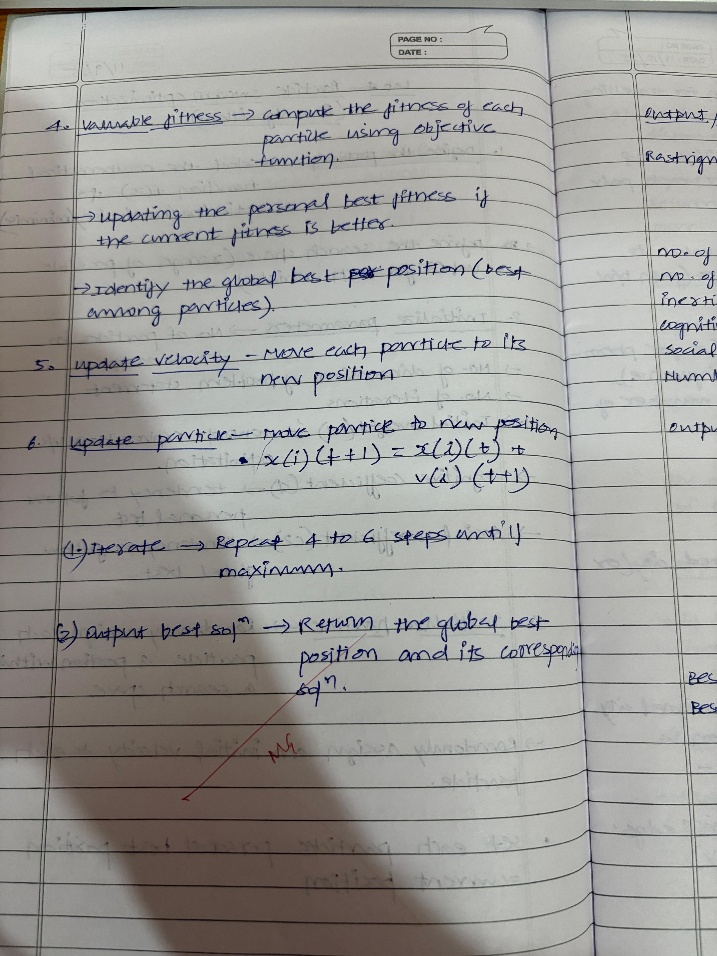 PAGE NO :
DATE :
4. Valuable fitness → compute the fitness of each
particle using objective
function.
→ updating the personal best fitness if
the current fitness is better.
→ Identify the global best position (best
among particles).
5. update velocity - Move each particle to its
new position
6. update particle - move particle to new position
• x(i)(t+1) = x(i)(t) +
v(i) (t+1)
(1.) Iterate → Repeat 4 to 6 steps until
maximum.
(2) Output best solⁿ → Return the global best
position and its corresponding
solⁿ.
output
Rastrign
no. of
no. of
inerti
cogniti
social
Numb
outpu
Bes
Bes